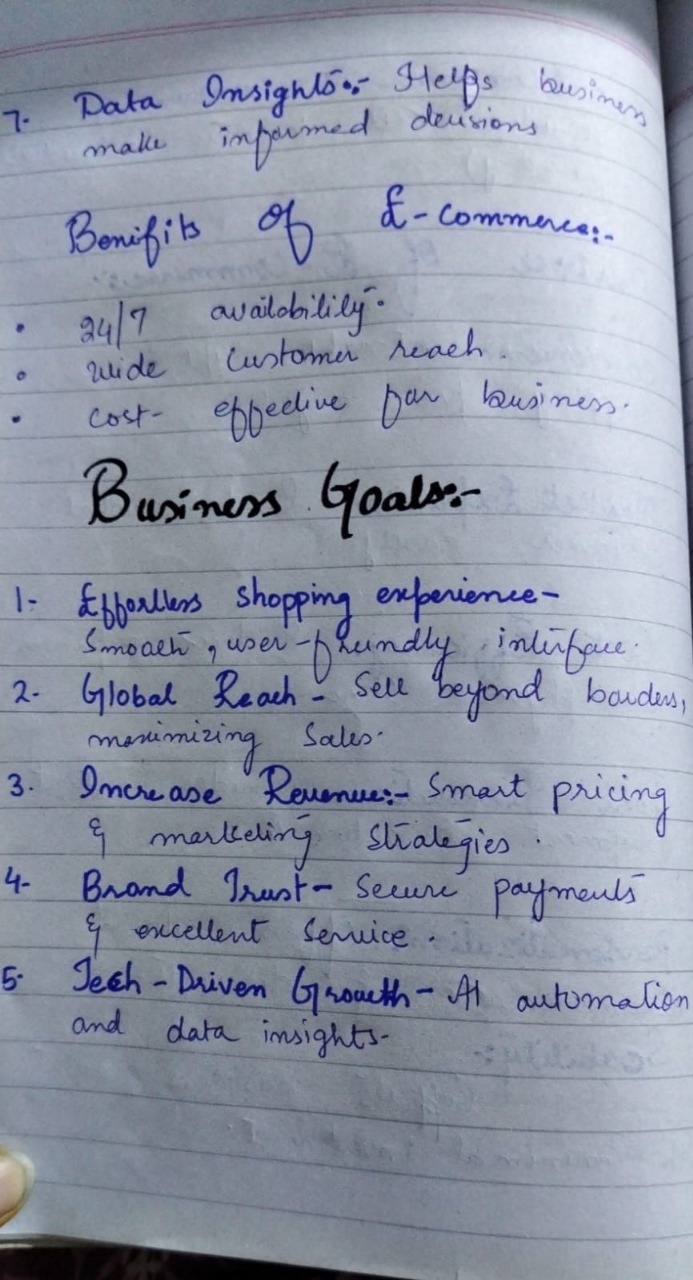 7. Data Insights:- Helps business
make informed decisions
Benifits of E-commerce:-
• 24/7 availability.
• wide customer reach.
• cost- effective for business.
Business Goals:-
1- Effortless shopping experience-
Smooth, user-friendly interface.
2- Global Reach - Sell beyond borders,
maximizing sales.
3. Increase Revenue:- Smart pricing
& marketing strategies.
4- Brand Trust- Secure payments
& excellent service.
5- Tech-Driven Growth- AI automation
and data insights-